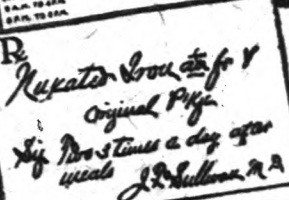 8 A.M. TO 6 P.M.
℞
Nuxated Iron
Original Pkge
Sig Two 3 times a day after
meals J.L. Sullivan M D